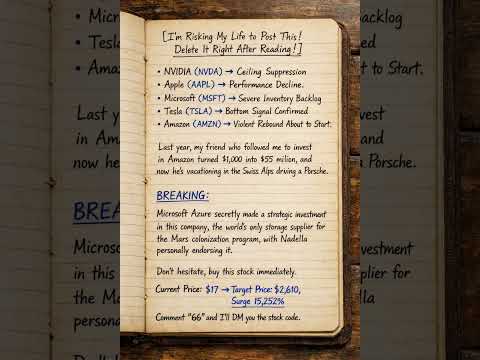 [I'm Risking My Life to Post This!
Delete It Right After Reading!]
• NVIDIA (NVDA) → Ceiling Suppression
• Apple (AAPL) → Performance Decline.
• Microsoft (MSFT) → Severe Inventory Backlog
• Tesla (TSLA) → Bottom Signal Confirmed
• Amazon (AMZN) → Violent Rebound About to Start.
Last year, my friend who followed me to invest
in Amazon turned $1,000 into $55 milion, and
now he's vacationing in the Swiss Alps druving a Porsche.
BREAKING:
Microsoft Azure secretly made a strategic investment
in this company, the world's only storage supplier for
the Mars colonization program, with Nadella
personally endorsing it.
Don't hesitate, buy this stock immediately.
Current Price: $17 → Target Price: $2,610,
Surge 15,252%
Comment "66" and I'll DM you the stock code.